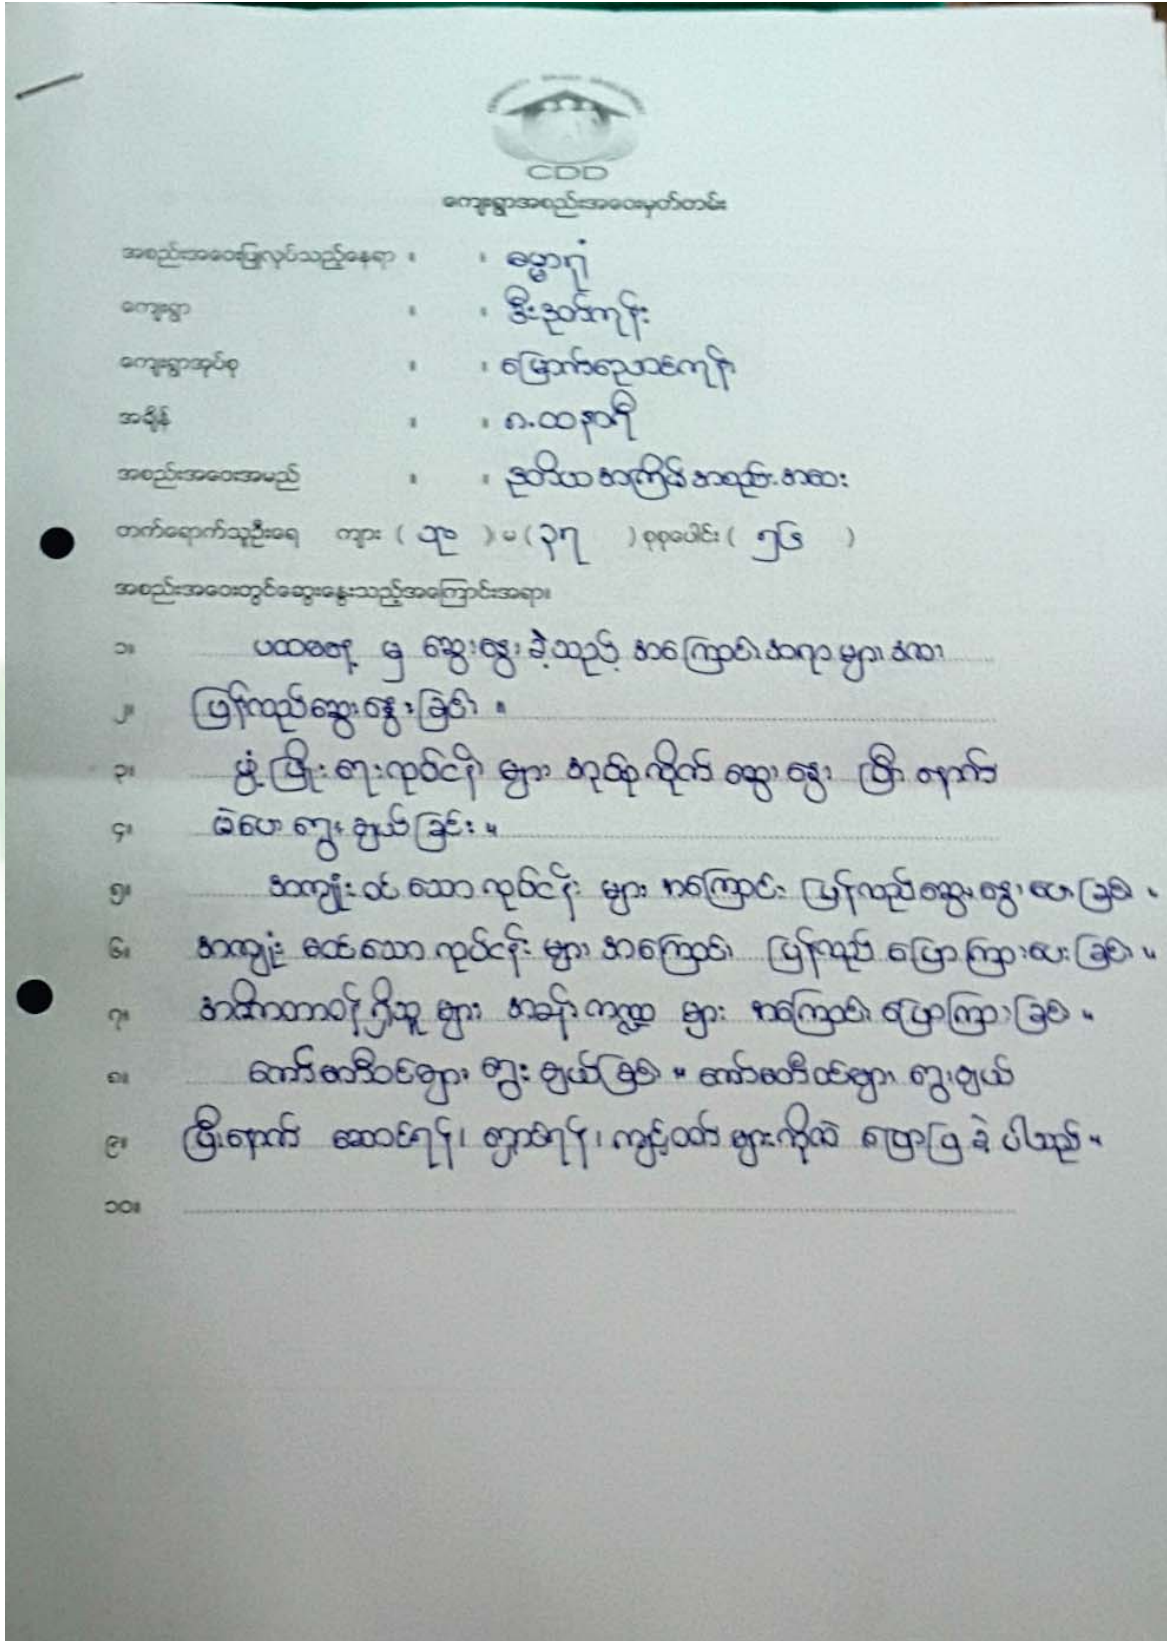 CDD
ကျေးရွာအစည်းအဝေးမှတ်တမ်း
အစည်းအဝေးပြုလုပ်သည့်နေရာ ။ ။ ဓမ္မာရုံ
ကျေးရွာ ။ ။ ဒီးဒုတ်ကုန်း
ကျေးရွာအုပ်စု ။ ။ မြောက်ညောင်ကုန်း
အချိန် ။ ။ ၈.၀၀ နာရီ
အစည်းအဝေးအမည် ။ ။ ဒုတိယအကြိမ်အစည်းအဝေး
တက်ရောက်သူဦးရေ ကျား ( ) မ ( ၃၇ ) စုစုပေါင်း ( ၅၆ )
အစည်းအဝေးတွင်ဆွေးနွေးသည့်အကြောင်းအရာ။
၁။ ပထမနေ့ မှ ဆွေးနွေးခဲ့သည့် အကြောင်းအရာများအား
၂။ ပြန်လည်ဆွေးနွေးခြင်း ။
၃။ ဖွံ့ဖြိုးရေးလုပ်ငန်း များ အုပ်စုလိုက် ဆွေးနွေး ပြီးနောက်
၄။ မဲပေးရွေးချယ်ခြင်း ။
၅။ အကျုံးဝင်သောလုပ်ငန်း များ အကြောင်း ပြန်လည်ဆွေးနွေးပေးခြင်း ။
၆။ အကျုံး မဝင်သောလုပ်ငန်း များ အကြောင်း ပြန်လည် ပြောကြားပေးခြင်း ။
၇။ အဓိကတာဝန်ရှိသူ များ အခန်းကဏ္ဍ များ အကြောင်းပြောကြားခြင်း ။
၈။ ကော်မတီဝင်များ ရွေးချယ်ခြင်း ။ ကော်မတီဝင်များ ရွေးချယ်
၉။ ပြီးနောက် ဆောင်ရန်၊ ရှောင်ရန်၊ ကျင့်ဝတ် များကိုလဲ ပြောပြခဲ့ပါသည် ။
၁၀။